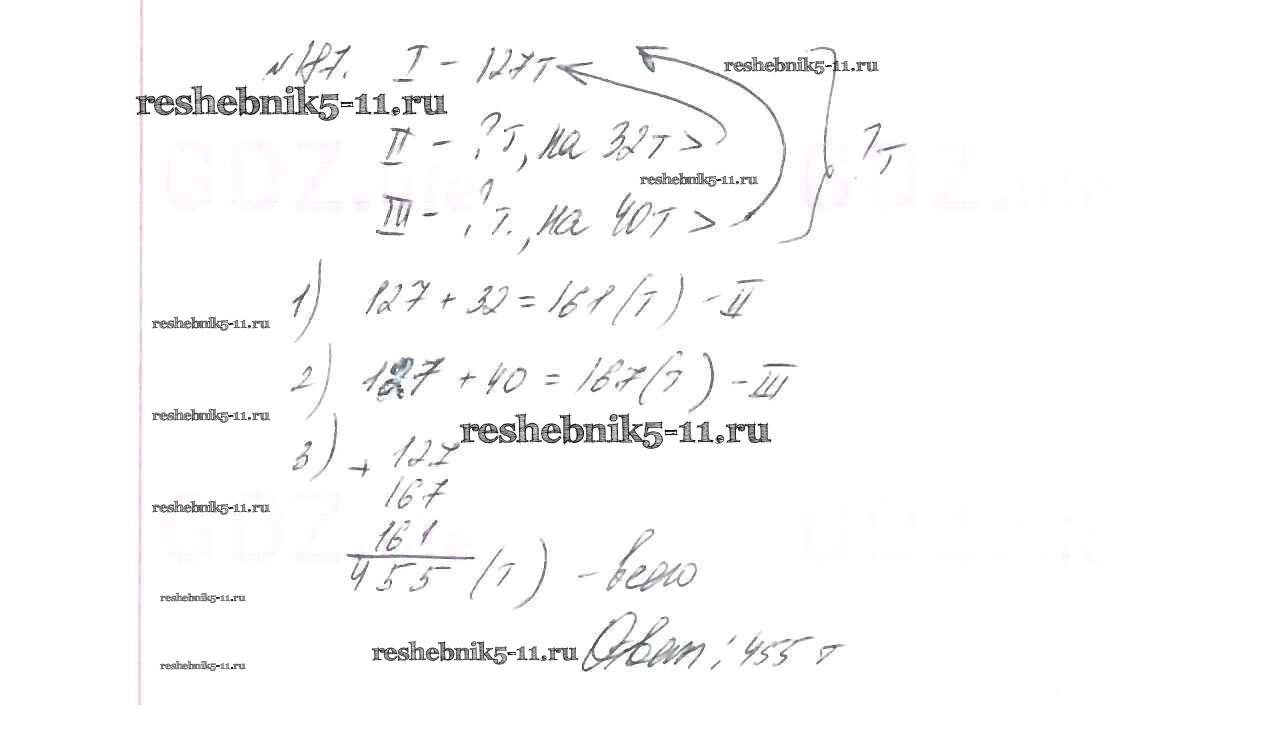 №187. I - 127т
reshebnik5-11.ru
reshebnik5-11.ru
II - ?т, на 32т >
?т
reshebnik5-11.ru
III - ?т., на 40т >
1) 127 + 32 = 161 (т) - II
reshebnik5-11.ru
2) 127 + 40 = 167 (т) - III
reshebnik5-11.ru
reshebnik5-11.ru
3) + 127
167
reshebnik5-11.ru
161
455 (т) - всего
reshebnik5-11.ru
reshebnik5-11.ru Ответ: 455 т
reshebnik5-11.ru